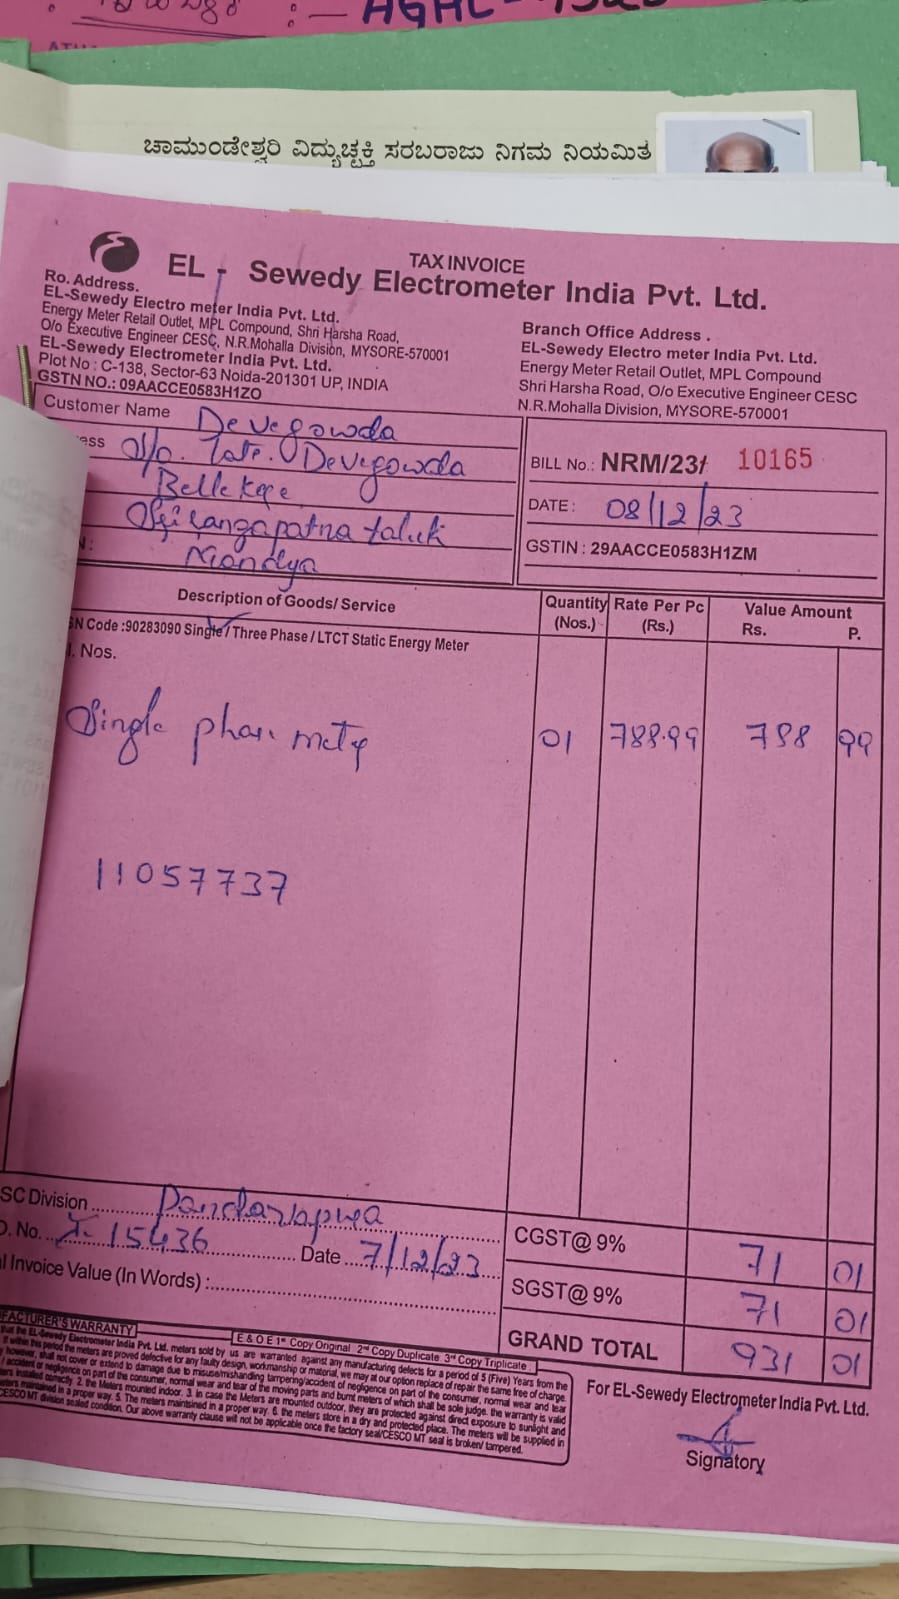 AGHL
ಚಾಮುಂಡೇಶ್ವರಿ ವಿದ್ಯುಚ್ಛಕ್ತಿ ಸರಬರಾಜು ನಿಗಮ ನಿಯಮಿತ
TAX INVOICE
EL - Sewedy Electrometer India Pvt. Ltd.
Ro. Address.
EL-Sewedy Electro meter India Pvt. Ltd.
Energy Meter Retail Outlet, MPL Compound, Shri Harsha Road,
O/o Executive Engineer CESC, N.R.Mohalla Division, MYSORE-570001
EL-Sewedy Electrometer India Pvt. Ltd.
Plot No : C-138, Sector-63 Noida-201301 UP, INDIA
GSTN NO.: 09AACCE0583H1ZO
Branch Office Address .
EL-Sewedy Electro meter India Pvt. Ltd.
Energy Meter Retail Outlet, MPL Compound
Shri Harsha Road, O/o Executive Engineer CESC
N.R.Mohalla Division, MYSORE-570001
Customer Name Devegowda
ess S/o. Late. Devegowda
Bellekere
Srirangapatna taluk
N : Mandya
BILL No.: NRM/23/ 10165
DATE : 08/12/23
GSTIN : 29AACCE0583H1ZM
Description of Goods/ Service Quantity (Nos.) Rate Per Pc (Rs.) Value Amount Rs. P.
SN Code :90283090 Single / Three Phase / LTCT Static Energy Meter
l. Nos.
Single phase meter 01 788.99 788 99
11057737
SC Division Pandavapura
O. No. 15436 Date 7/12/23
l Invoice Value (In Words) :
CGST@ 9% 71 01
SGST@ 9% 71 01
GRAND TOTAL 931 01
FACTURER'S WARRANTY
E & O E 1st Copy Original 2nd Copy Duplicate 3rd Copy Triplicate .
that the EL-Sewedy Electrometer India Pvt. Ltd. meters sold by us are warranted against any manufacturing defects for a period of 5 (Five) Years from the
If within this period the meters are proved defective for any faulty design, workmanship or material, we may at our option replace of repair the same free of charge.
however, shall not cover or extend to damage due to misuse/mishanding tampering/accident of negligence on part of the consumer, normal wear and tear
accident or negligence on part of the consumer, normal wear and tear of the moving parts and burnt meters of which shall be sole judge. the warranty is valid
installed correctly. 2. the Meters mounted indoor. 3. in case the Meters are mounted outdoor, they are protected against direct exposure to sunlight and
maintained in a proper way. 5. The meters maintained in a proper way. 6. the meters store in a dry and protected place. The meters will be supplied in
CESCO MT division sealed condition. Our above warranty clause will not be applicable once the factory seal/CESCO MT seal is broken/ tampered.
For EL-Sewedy Electrometer India Pvt. Ltd.
Signatory